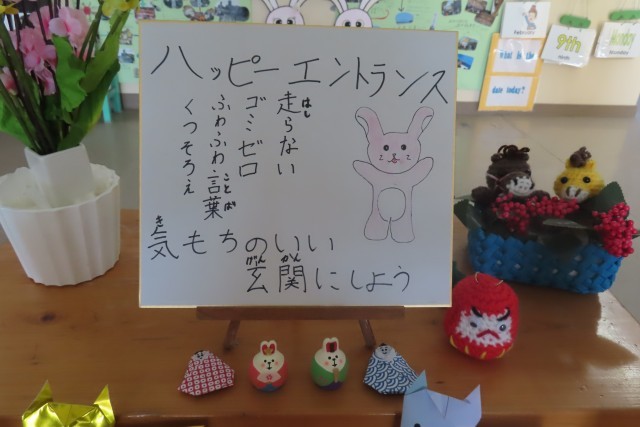 ハッピーエントランス
走らない
はし
ゴミゼロ
ふわふわ言葉
ことば
くつそろえ
気もちのいい
き
玄関にしよう
げんかん
February
9th
What is the
date today?